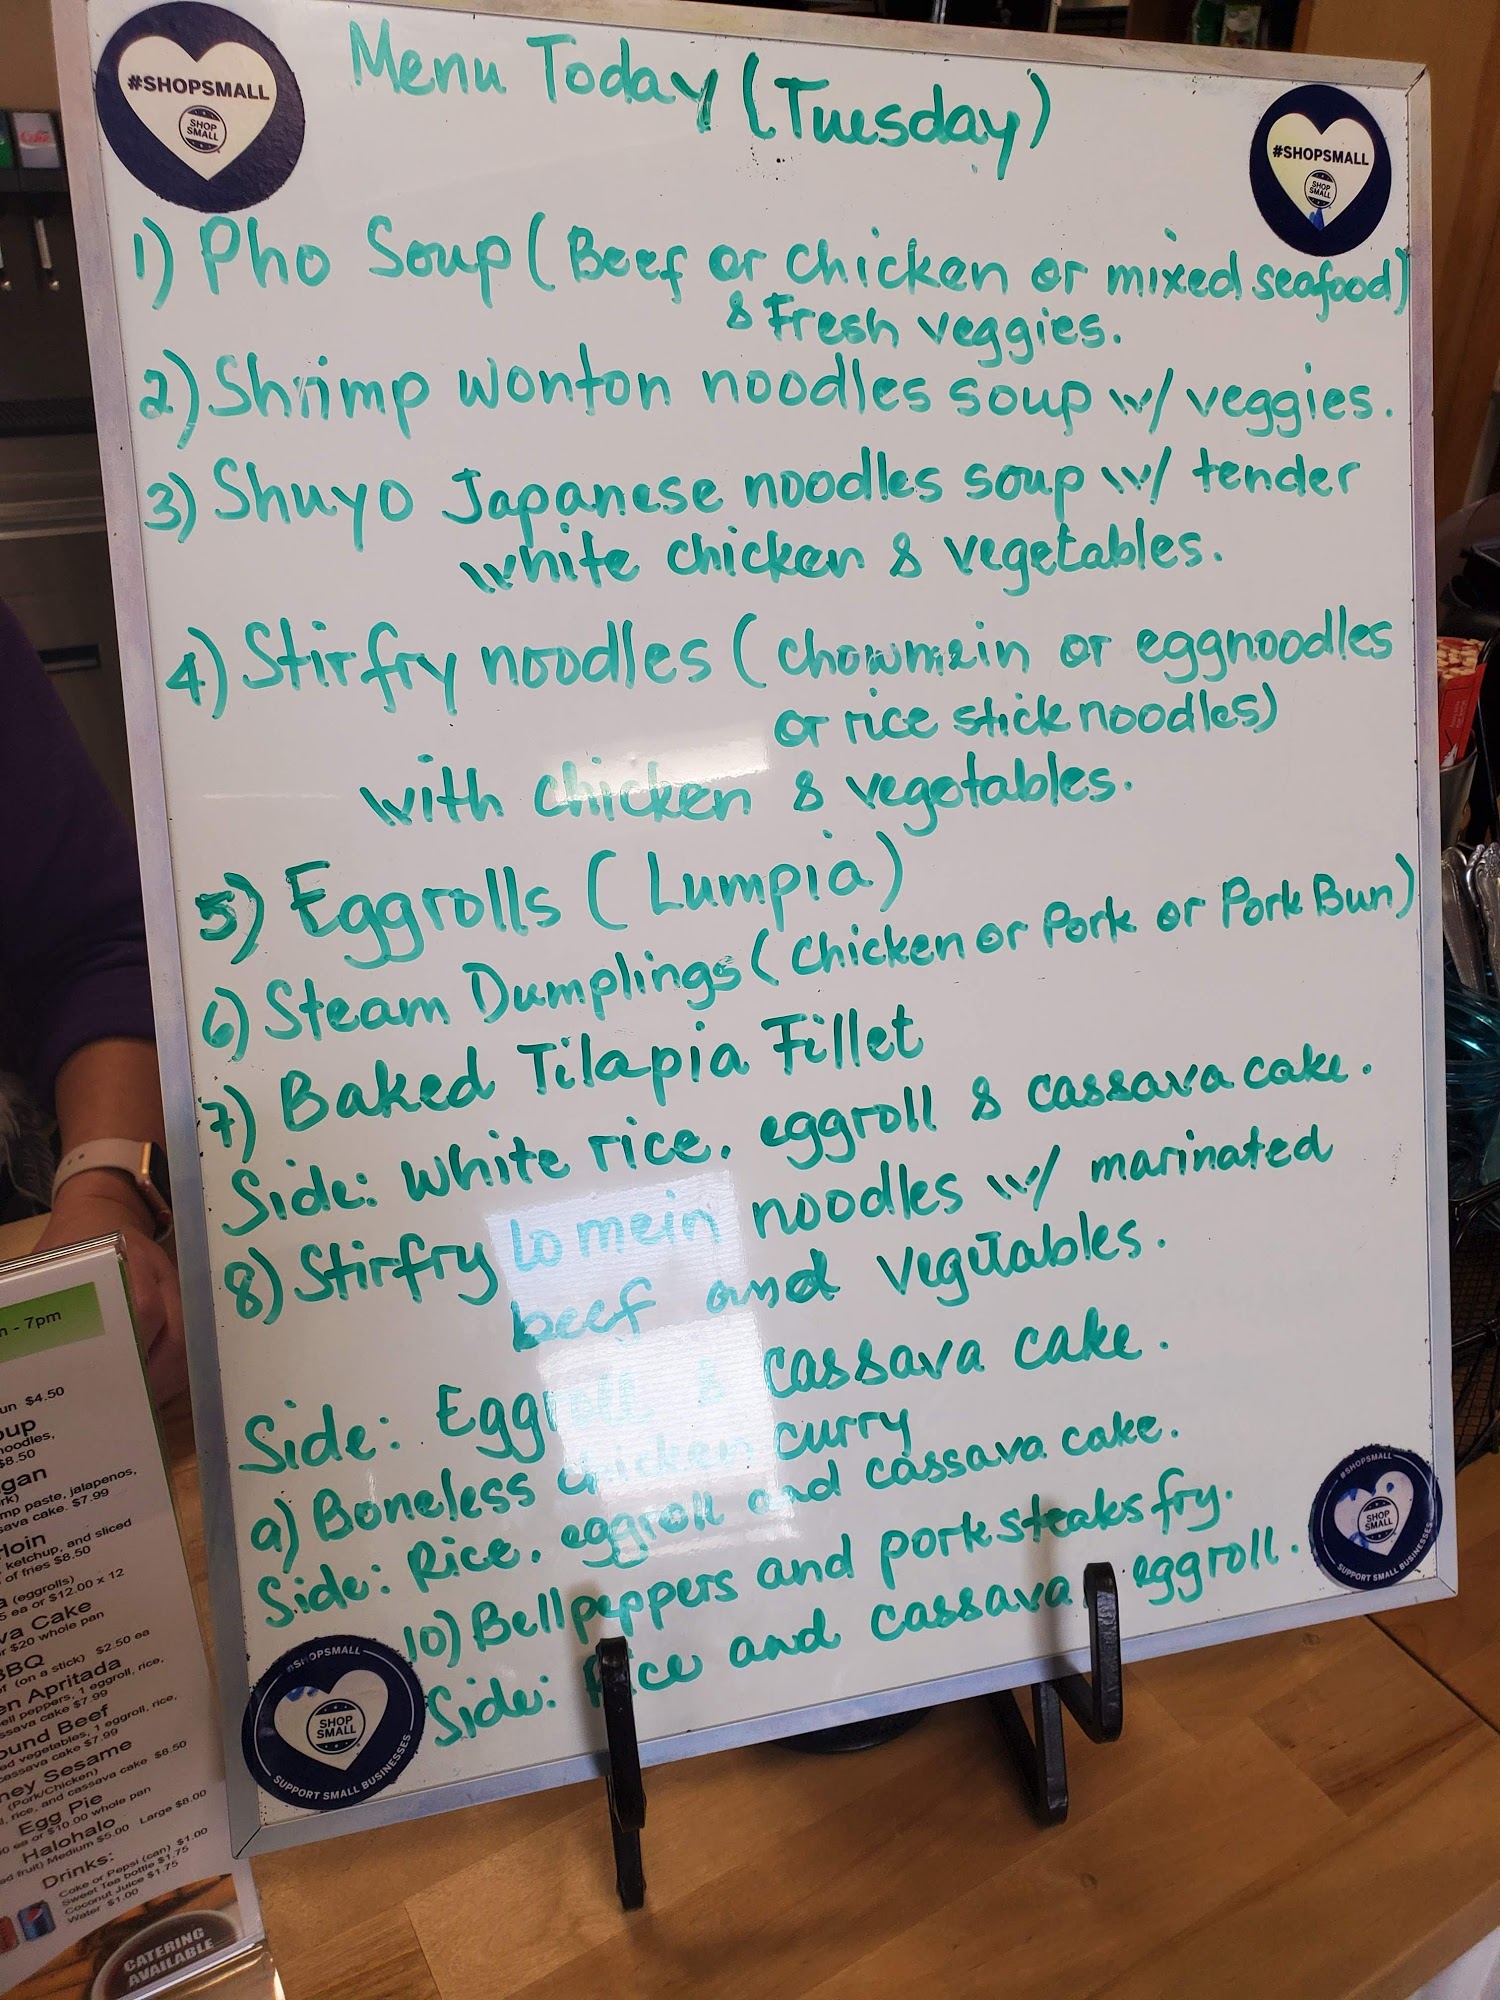 #SHOPSMALL
SHOP
SMALL
Menu Today (Tuesday)
#SHOPSMALL
SHOP
SMALL
1) Pho Soup (Beef or chicken or mixed seafood)
& Fresh veggies.
2) Shrimp wonton noodles soup w/ veggies.
3) Shuyo Japanese noodles soup w/ tender
white chicken & vegetables.
4) Stirfry noodles (chowmein or eggnoodles
or rice stick noodles)
with chicken & vegetables.
5) Eggrolls (Lumpia)
6) Steam Dumplings (Chicken or Pork or Pork Bun)
7) Baked Tilapia Fillet
Side: white rice, eggroll & cassava cake.
8) Stirfry lo mein noodles w/ marinated
beef and vegetables.
Side: Eggroll & cassava cake.
9) Boneless chicken curry
Side: Rice, eggroll and cassava cake.
10) Bellpeppers and pork steaks fry.
Side: Rice and cassava eggroll.
#SHOPSMALL
SHOP
SMALL
SUPPORT SMALL BUSINESSES
#SHOPSMALL
SHOP
SMALL
SUPPORT SMALL BUSINESSES
- 7pm
$4.50
noodles,
$8.50
jalapenos,
cake. $7.99
ketchup, and sliced
of fries $8.50
(eggrolls)
ea or $12.00 x 12
Cake
$20 whole pan
BBQ
(on a stick) $2.50 ea
Apritada
peppers, 1 eggroll, rice,
cake $7.99
Beef
vegetables, 1 eggroll, rice,
cassava cake $7.99
Sesame
(Pork/Chicken)
rice, and cassava cake $8.50
Egg Pie
ea or $10.00 whole pan
Halohalo
fruit) Medium $5.00 Large $8.00
Drinks:
Coke or Pepsi (can) $1.00
Sweet Tea bottle $1.75
Coconut Juice $1.75
Water $1.00
CATERING
AVAILABLE